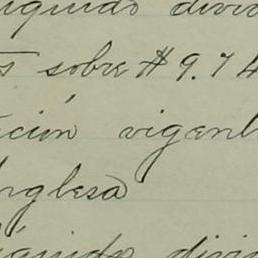 iquido divid
s sobre $9.74
ción vigent
nglesa
íquido divid